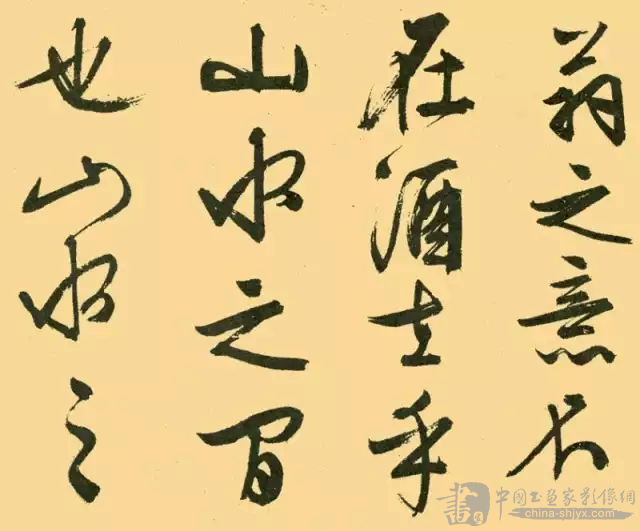 翁之意不
在酒在乎
山水之间
也山水之
書 中国书画家影像網
china-shjyx.com